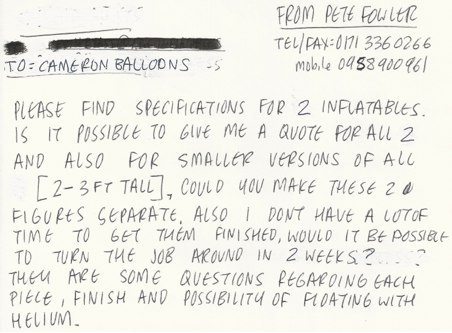 FROM PETE FOWLER
TEL/FAX=0171 336 0266
mobile 0958900961
TO= CAMERON BALLOONS
PLEASE FIND SPECIFICATIONS FOR 2 INFLATABLES.
IS IT POSSIBLE TO GIVE ME A QUOTE FOR ALL 2
AND ALSO FOR SMALLER VERSIONS OF ALL
[2-3FT TALL], COULD YOU MAKE THESE 2
FIGURES SEPARATE. ALSO I DONT HAVE A LOTOF
TIME TO GET THEM FINISHED, WOULD IT BE POSSIBLE
TO TURN THE JOB AROUND IN 2 WEEKS?.....?
THEY ARE SOME QUESTIONS REGARDING EACH
PIECE, FINISH AND POSSIBILITY OF FLOATING WITH
HELIUM.